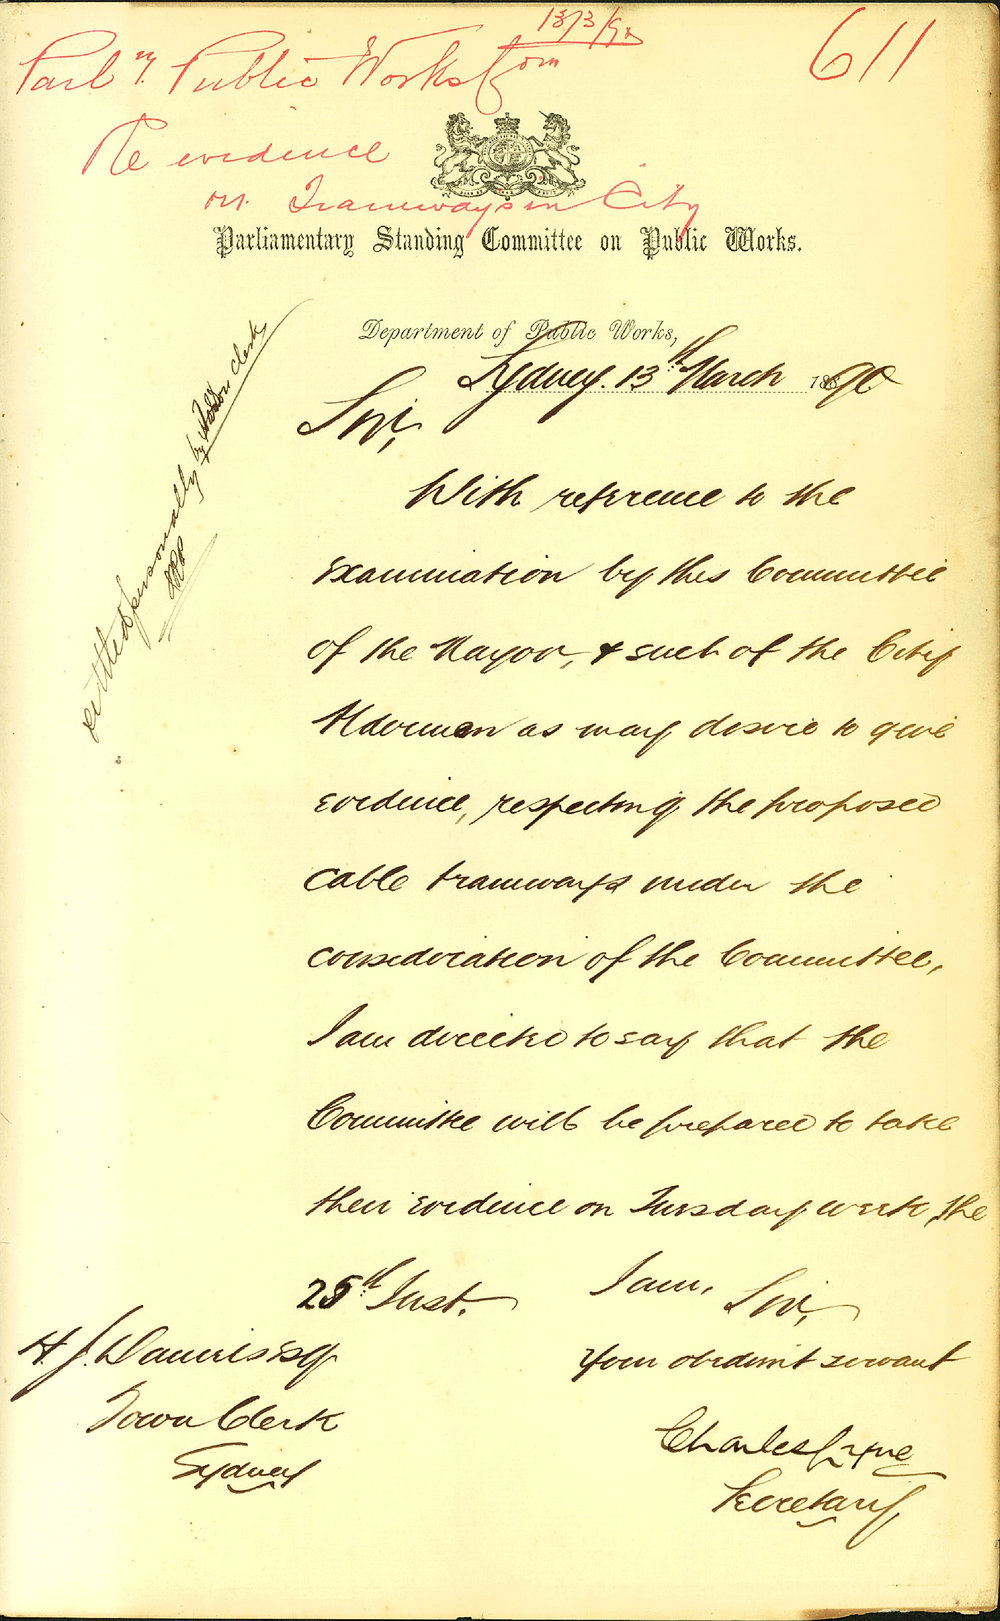 13/3/90
611
Parlny. Public Works Com
Re evidence
on Tramways in City
Parliamentary Standing Committee on Public Works.
Department of Public Works,
Sydney. 13th March 1890
Sir,
With reference to the
examination by this Committee
of the Mayor, & such of the City
Aldermen as may desire to give
evidence, respecting the proposed
cable tramways under the
consideration of the Committee,
I am directed to say that the
Committee will be prepared to take
their evidence on Tuesday week, the
25th Inst.
I am,
Sir,
Your obedient servant
Charles Lyne
Secretary
H. J. Daniels Esq
Town Clerk
Sydney
personally by Town Clerk